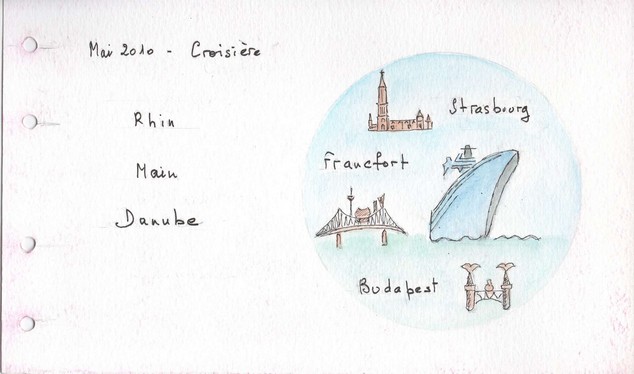 Mai 2010 - Croisière
Rhin
Main
Danube
Strasbourg
Francfort
Budapest